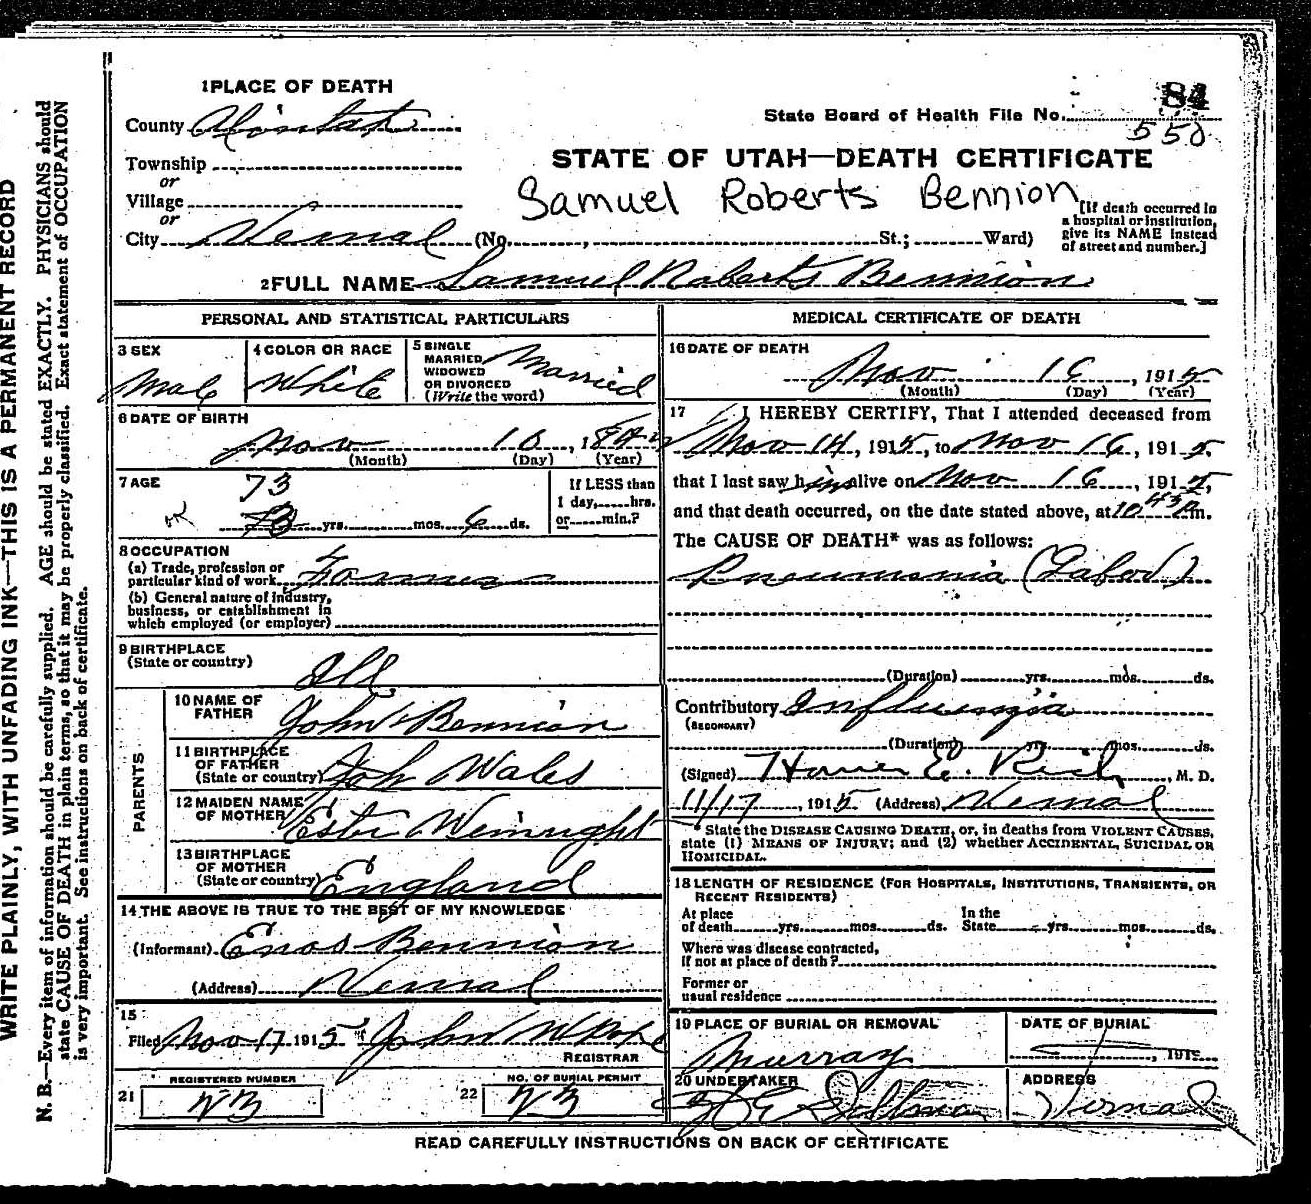 WRITE PLAINLY, WITH UNFADING INK—THIS IS A PERMANENT RECORD
N. B.—Every item of information should be carefully supplied. AGE should be stated EXACTLY. PHYSICIANS should
state CAUSE OF DEATH in plain terms, so that it may be properly classified. Exact statement of OCCUPATION
is very important. See instructions on back of certificate.
1 PLACE OF DEATH
84
State Board of Health File No.
550
County
Township
or
Village
or
City Vernal (No. , St.; Ward)
STATE OF UTAH—DEATH CERTIFICATE
Samuel Roberts Bennion
[If death occurred in
a hospital or institution,
give its NAME instead
of street and number.]
2 FULL NAME Samuel Roberts Bennion
PERSONAL AND STATISTICAL PARTICULARS
3 SEX
Male
4 COLOR OR RACE
White
5 SINGLE
MARRIED
WIDOWED
OR DIVORCED
(Write the word)
Married
6 DATE OF BIRTH
Nov 10, 1842
(Month) (Day) (Year)
7 AGE
73
yrs. mos. 6 ds.
If LESS than
1 day, hrs.
or min.?
8 OCCUPATION
(a) Trade, profession or
particular kind of work Farmer
(b) General nature of industry,
business, or establishment in
which employed (or employer)
9 BIRTHPLACE
(State or country)
Ill
PARENTS
10 NAME OF
FATHER
John Bennion
11 BIRTHPLACE
OF FATHER
(State or country) Wales
12 MAIDEN NAME
OF MOTHER Ester Wainright
13 BIRTHPLACE
OF MOTHER
(State or country) England
14 THE ABOVE IS TRUE TO THE BEST OF MY KNOWLEDGE
(Informant) Enos Bennion
(Address) Vernal
15
Filed Nov 17 1915 John N Pope
REGISTRAR
REGISTERED NUMBER
21
NO. OF BURIAL PERMIT
22
MEDICAL CERTIFICATE OF DEATH
16 DATE OF DEATH
Nov 16, 1915
(Month) (Day) (Year)
17 I HEREBY CERTIFY, That I attended deceased from
Nov 14, 1915, to Nov 16, 1915,
that I last saw him alive on Nov 16, 1915,
and that death occurred, on the date stated above, at 10 45 P.m.
The CAUSE OF DEATH* was as follows:
Pneumonia (Lobar)
(Duration) yrs. mos. ds.
Contributory Influenzia
(SECONDARY)
(Duration) yrs. mos. ds.
(Signed) Homer E. Rich, M. D.
11/17, 1915 (Address) Vernal
* State the DISEASE CAUSING DEATH, or, in deaths from VIOLENT CAUSES,
state (1) MEANS OF INJURY; and (2) whether ACCIDENTAL, SUICIDAL OR
HOMICIDAL.
18 LENGTH OF RESIDENCE (FOR HOSPITALS, INSTITUTIONS, TRANSIENTS, OR
RECENT RESIDENTS)
At place
of death yrs. mos. ds. In the
State yrs. mos. ds.
Where was disease contracted,
if not at place of death?
Former or
usual residence
19 PLACE OF BURIAL OR REMOVAL
Murray
DATE OF BURIAL
, 191
20 UNDERTAKER
ADDRESS
Vernal
READ CAREFULLY INSTRUCTIONS ON BACK OF CERTIFICATE